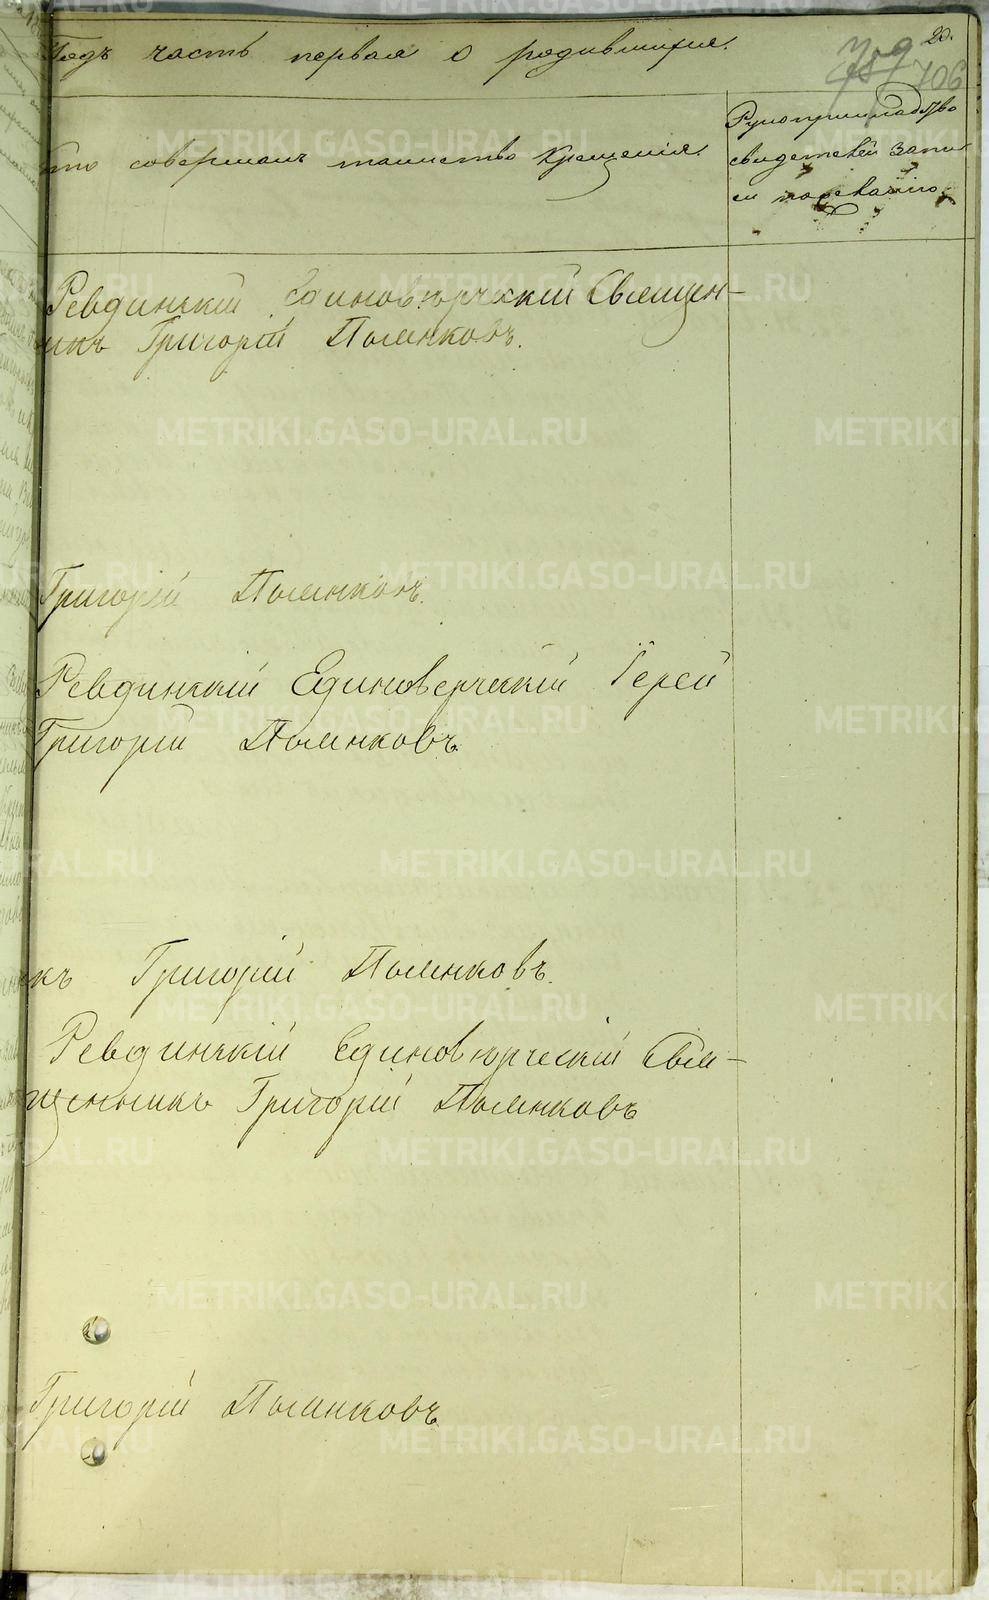 Годъ часть первая о родившихся.
20.
759
706
Кто совершалъ таинство крещенія.
Рукоприкладство
свидетелей запи-
си по желанію.
Ревдинскій Единовѣрческій Священ-
никъ Григорій Полянковъ.
Григорій Полянковъ.
Ревдинскій Единоверческій Іерей
Григорій Полянковъ.
къ Григорій Полянковъ.
Ревдинскій Единовѣрческій Свя-
щенникъ Григорій Полянковъ
Григорій Полянковъ.
METRIKI.GASO-URAL.RU